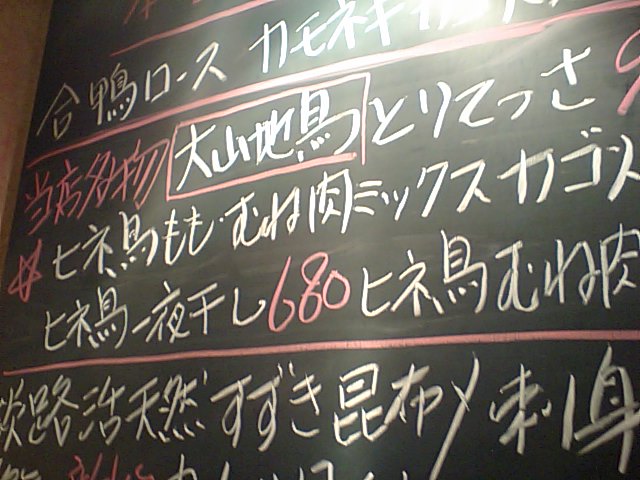 合鴨ロース カモネギ
当店名物 大山地鳥 とりてっさ
☆ヒネ鳥もも・むね肉ミックスカゴメ
ヒネ鳥一夜干し680 ヒネ鳥むね肉
淡路活天然すずき昆布〆刺身